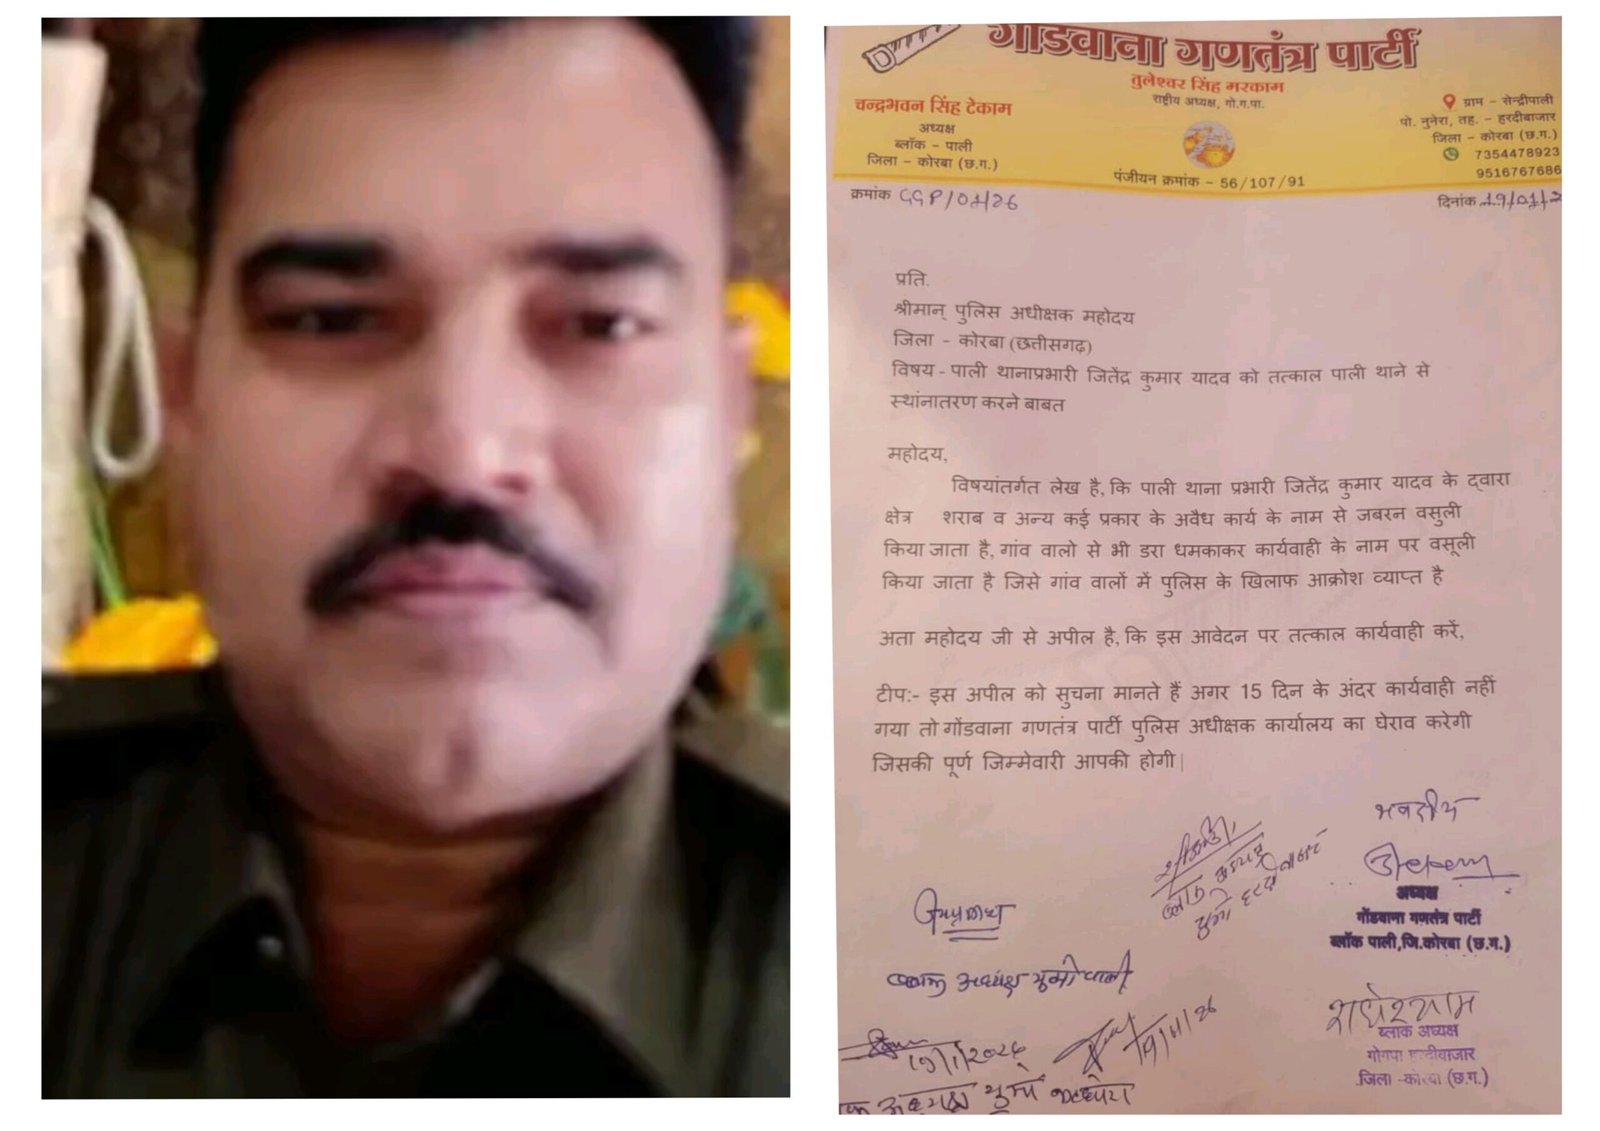 गोंडवाना गणतंत्र पार्टी
तुलेश्वर सिंह मरकाम
राष्ट्रीय अध्यक्ष, गो.ग.पा.
चन्द्रभवन सिंह टेकाम
अध्यक्ष
ब्लॉक - पाली
जिला - कोरबा (छ.ग.)
ग्राम - सेन्द्रीपाली
पो. नुनेरा, तह. - हरदीबाजार
जिला - कोरबा (छ.ग.)
7354478923
9516767686
पंजीयन क्रमांक - 56/107/91
क्रमांक GGP/01/26
दिनांक 19/01/2
प्रति.
श्रीमान् पुलिस अधीक्षक महोदय
जिला - कोरबा (छत्तीसगढ़)
विषय - पाली थानाप्रभारी जितेंद्र कुमार यादव को तत्काल पाली थाने से
स्थांनातरण करने बाबत
महोदय,
विषयांतर्गत लेख है, कि पाली थाना प्रभारी जितेंद्र कुमार यादव के द्वारा
क्षेत्र शराब व अन्य कई प्रकार के अवैध कार्य के नाम से जबरन वसुली
किया जाता है, गांव वालो से भी डरा धमकाकर कार्यवाही के नाम पर वसूली
किया जाता है जिसे गांव वालों में पुलिस के खिलाफ आक्रोश व्याप्त है
अता महोदय जी से अपील है, कि इस आवेदन पर तत्काल कार्यवाही करें,
टीप:- इस अपील को सुचना मानते हैं अगर 15 दिन के अंदर कार्यवाही नहीं
गया तो गोंडवाना गणतंत्र पार्टी पुलिस अधीक्षक कार्यालय का घेराव करेगी
जिसकी पूर्ण जिम्मेवारी आपकी होगी|
भवदीय
अध्यक्ष
गोंडवाना गणतंत्र पार्टी
ब्लॉक पाली,जि.कोरबा (छ.ग.)
ब्लाक अध्यक्ष युमो पाली
राधेश्याम
ब्लाक अध्यक्ष
गोगपा हरदीबाजार
जिला -कोरबा (छ.ग.)
19/1/2026
19/1/26
अध्यक्ष युमो